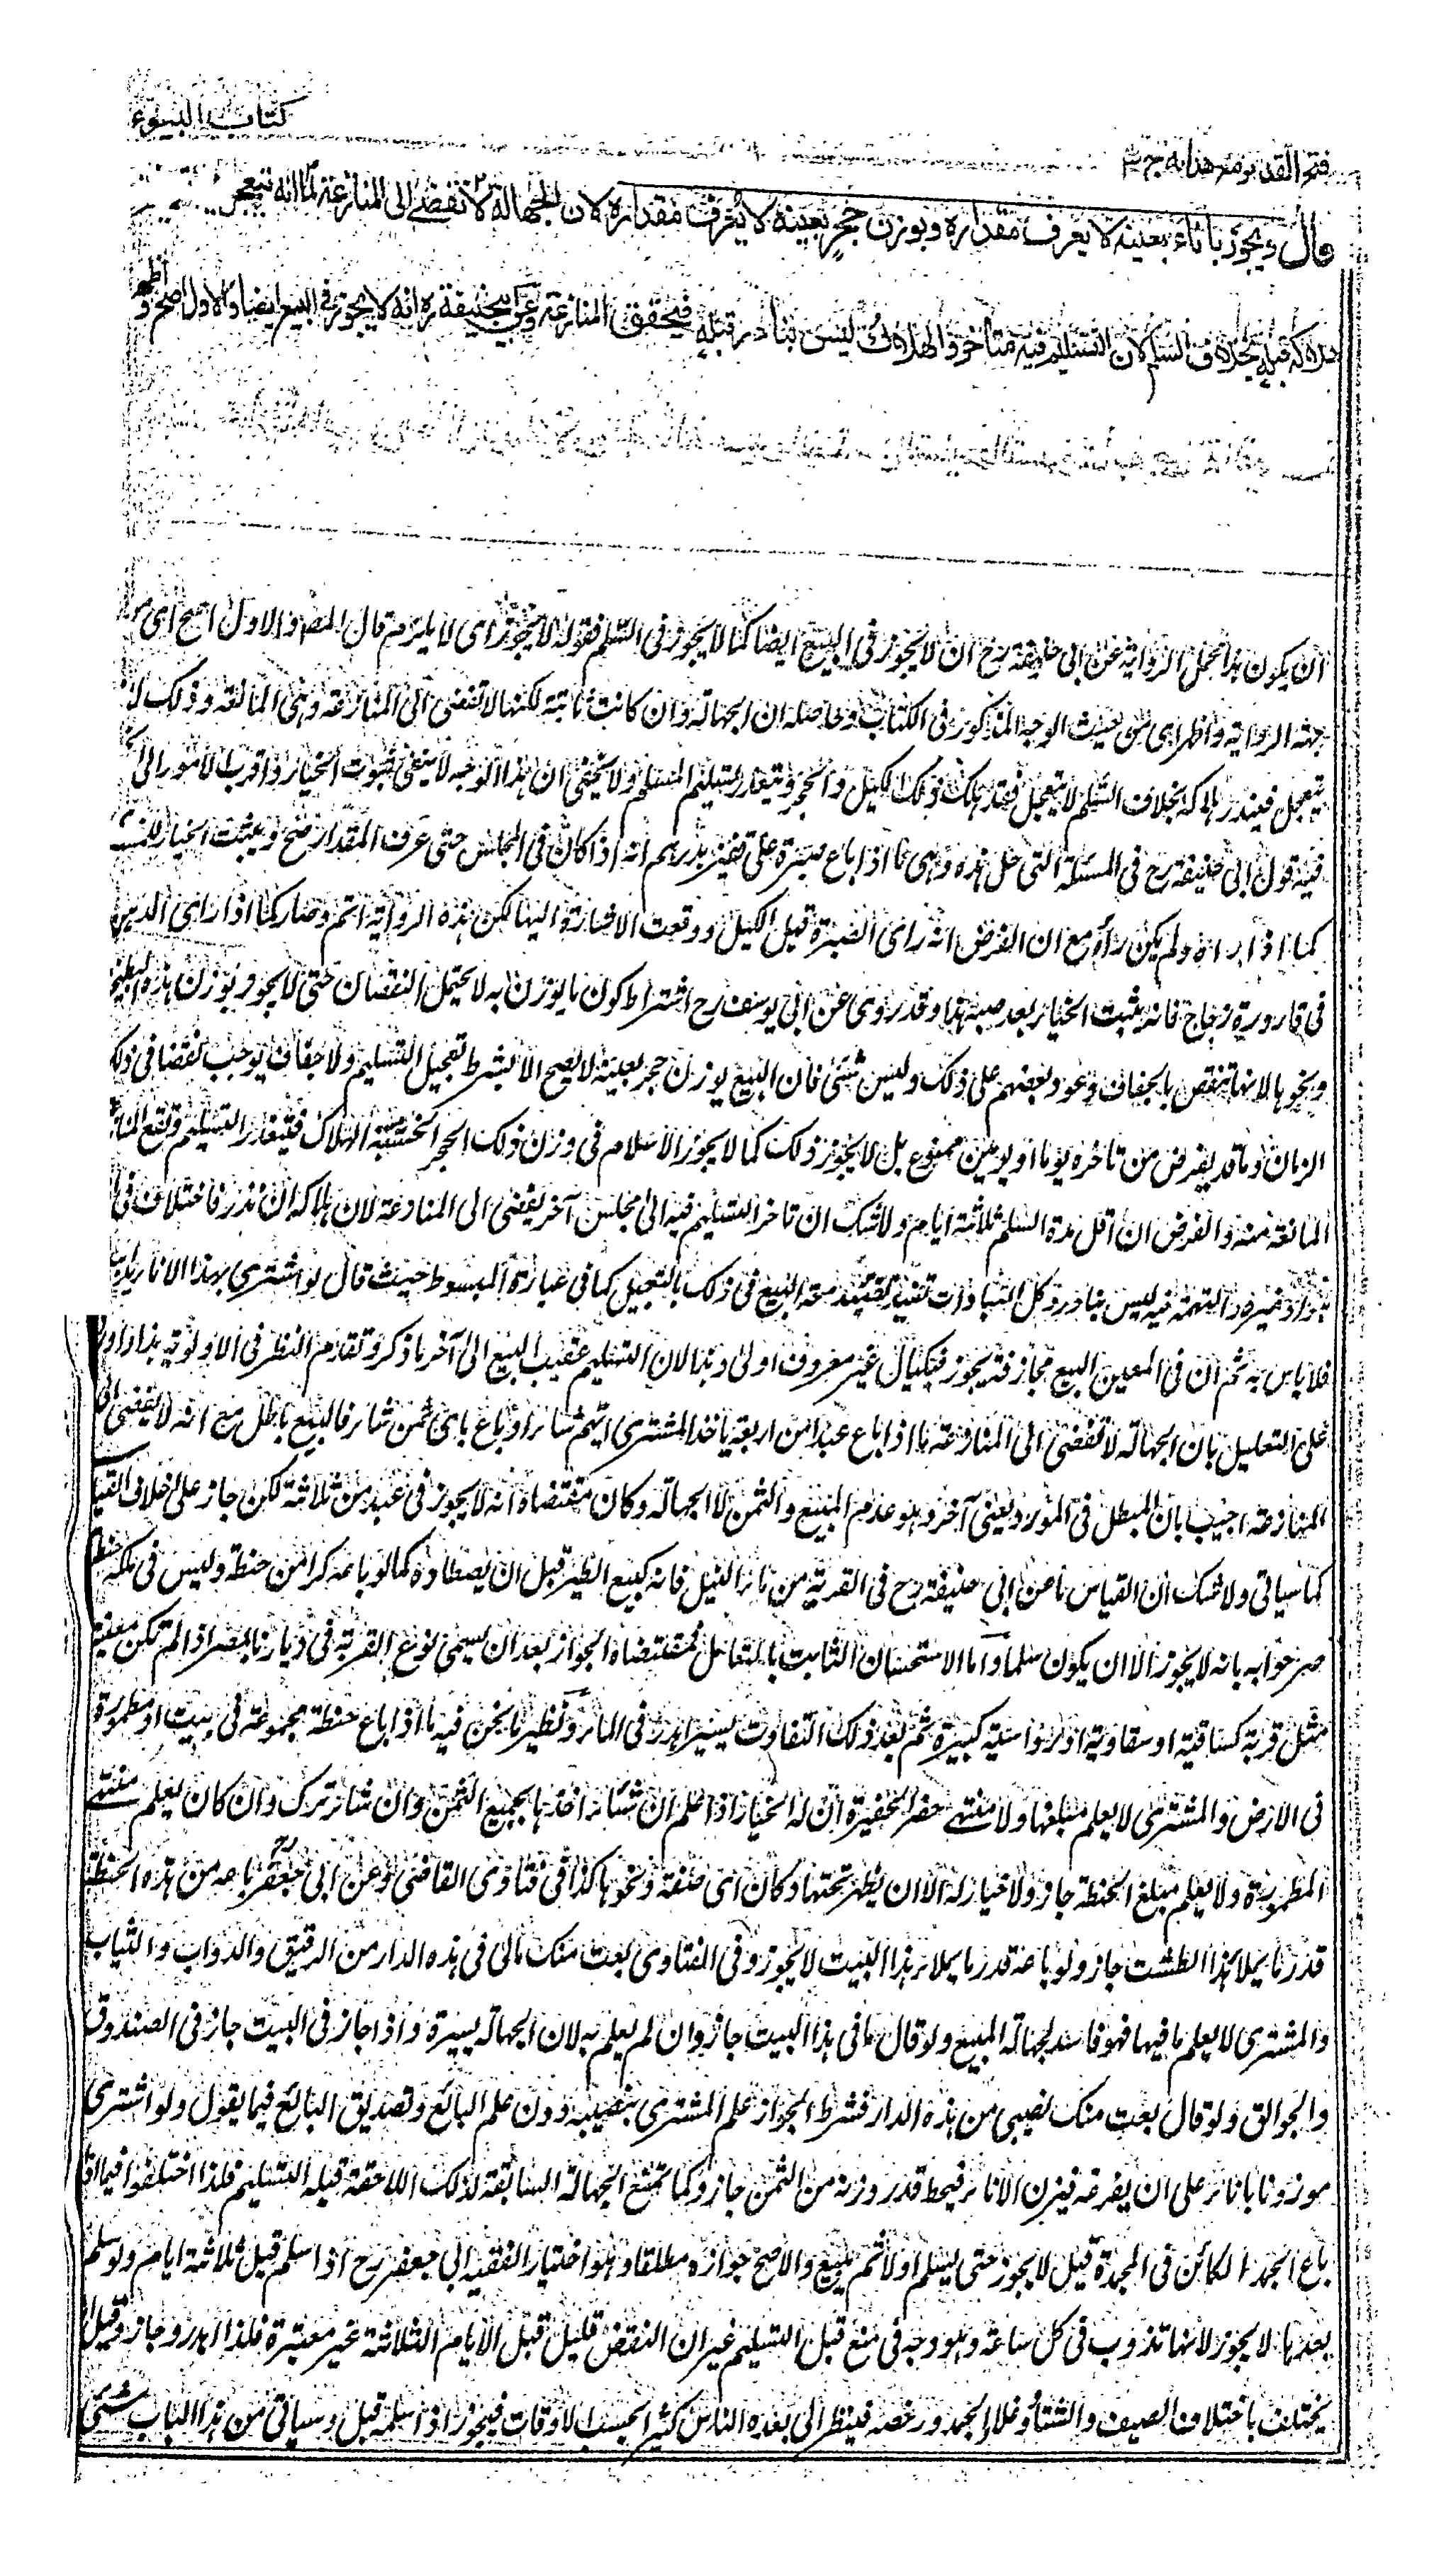 كتاب البيوع
فتح القدير مع هدايه ج ٣
قال ويجوز باناء بعينه لا يعرف مقداره وبوزن حجر بعينه لا يعرف مقداره لان الجهالة لا تفضي الى المنازعة لما انه يتعجل
هلاكه قبله بخلاف السلم لان التسليم فيه متاخر والهلاك ليس بنادر قبله فيتحقق المنازعة وعن ابيحنيفة ره انه لا يجوز في البيع ايضا والاول اصح واظهر
ان يكون هذا محمل الرواية عن ابى حنيفة رح ان لا يجوز فى البيع ايضا كما لا يجوز فى السلم فقوله لا يجوز اى لا يلزم قال المصـ والاول اصح اى من
جهة الرواية واظهر اى من حيث الوجه المذكور فى الكتاب وحاصله ان الجهالة وان كانت ثابتة لكنها لا تفضى الى المنازعة وهى المانعة وذلك لانه
يتعجل فيندر هلاكه بخلاف السلم لا يتعجل فقد يهلك ذلك الكيل والحجر ويتعذر تسليم المسلم ولا يخفى ان هذا الوجه لا ينفى ثبوت الخيار واقرب الامور الى
فيه قول ابى حنيفة رح فى المسئلة التى حل هذه وهى ما اذا باع صبرة على قفيز بدرهم انه اذا كان فى المجلس حتى عرف المقدار صح ويثبت الخيار
كما اذا راه ولم يكن رآه مع ان الفرض انه راى الصبرة قبل الكيل ووقعت الاشارة الينا لكن هذه الرواية اتم وصار كما اذا راى الدهن
فى قارورة زجاج فانه يثبت الخيار بعد صبه هذا وقد روى عن ابى يوسف رح اشتراط كون ما يوزن به لا يحتمل النقصان حتى لا يجوز بوزن هذه البطيخة
ونحوها لانها تنقص بالجفاف وعود بعضهم على ذلك وليس بشئ فان البيع بوزن حجر بعينه لا يصح الا بشرط تعجيل التسليم ولا جفاف يوجب نقصا فى ذلك
الزمان وما قد يفرض من تاخره يوما او يومين ممنوع بل لا يجوز ذلك كما لا يجوز الاسلام فى وزن ذلك الحجر لخشية الهلاك فيتعذر التسليم وتقع المنازعة
المانعة منه والفرض ان اقل مدة السلم ثلاثة ايام ولا شك ان تاخر التسليم فيه الى مجلس آخر يفضى الى المنازعة لان هلاكه ان ندر فاختلاف فى
هو او غيره والتهمة فيه ليس بنادر وكل العبارات تفيد تقييد صحة البيع فى ذلك بالتعجيل كما فى عبارة المبسوط حيث قال لو اشترى بهذا الاناء يدا بيد
فلا باس به ثم ان فى المعين البيع مجازفة يجوز فبمكيال غير معروف اولى وهذا لان التسليم عقيب البيع الى آخر ما ذكر وتقدم النظر فى الاولوية هذا واورد
على التعليل بان الجهالة لا تفضى الى المنازعة ما اذا باع عبدا من اربعة ياخذ المشترى ايهم شاء او باع باى ثمن شاء فالبيع باطل مع انه لا يفضى الى
المنازعة اجيب بان المبطل فى المورد معنى آخر وهو عدم المبيع والثمن لا الجهالة وكان مقتضاه انه لا يجوز فى عبد من ثلاثة لكن جاز على خلاف القياس
كما سياتى ولا شك ان القياس ما عن ابى حنيفة رح فى القربة من ماء النيل فانه كبيع الطير قبل ان يصطاده كما لو باعه كرا من حنطة وليس فى ملكه حنطة
صرحوا به بانه لا يجوز الا ان يكون سلما واما الاستحسان الثابت بالتعامل فمقتضاه الجواز بعد ان يسمى نوع القربة فى ديارنا بمصر اذا لم تكن معينة
مثل قربة كساقية او سقاوية او لرواسية كبيرة ثم بعد ذلك التفاوت يسير اهدر فى الماء ونظير ما نحن فيه ما اذا باع حنطة مجموعة فى بيت او مطمورة
فى الارض والمشترى لا يعلم مبلغها ولا منتهى حفر الحفيرة ان له الخيار اذا علم ان شاء اخذها بجميع الثمن وان شاء ترك وان كان يعلم منتهى
المطمورة ولا يعلم مبلغ الحنطة جاز ولا خيار له الا ان يظهر تحتها دكان اى صفة ونحوها كذا فى فتاوى القاضى وعن ابى جعفر رح باعه من هذه الحنطة
قدر ما يملأ هذا الطشت جاز ولو باعه قدر ما يملاء هذا البيت لا يجوز وفى الفتاوى بعت منك مالى فى هذه الدار من الرقيق والدواب والثياب
والمشترى لا يعلم ما فيها فهو فاسد لجهالة المبيع ولو قال ما فى هذا البيت جاز وان لم يعلم به لان الجهالة يسيرة واذا جاز فى البيت جاز فى الصندوق
والجوالق ولو قال بعت منك نصيبى من هذه الدار فشرط الجواز علم المشترى بنصيبه دون علم البائع وتصديق البائع فيما يقول ولو اشترى
موزونا باناء على ان يفرغه فيزن الاناء فيحط قدر وزنه من الثمن جاز وكما تمنع الجهالة السابقة كذلك اللاحقة قبله التسليم فلذا اختلفوا فيما اذا
باع الجمد الكائن فى المجمدة قيل لا يجوز حتى يسلم اولا ثم يبيع والاصح جوازه مطلقا وهو اختيار الفقيه ابى جعفر رح اذا سلم قبل ثلاثة ايام ولو سلم
بعدها لا يجوز لانها تذوب فى كل ساعة وهو وجه فى منع قبل التسليم غير ان النقض قليل قبل الايام الثلاثة غير معتبرة فلذا اهدر وجاز وقيل
يختلف باختلاف الصيف والشتاء وغلاء الجمد ورخصه فينظر الى بعده الناس كثيرا بحسب الاوقات فيجوز اذا سلمه قبل وسياتى من هذا الباب شئ